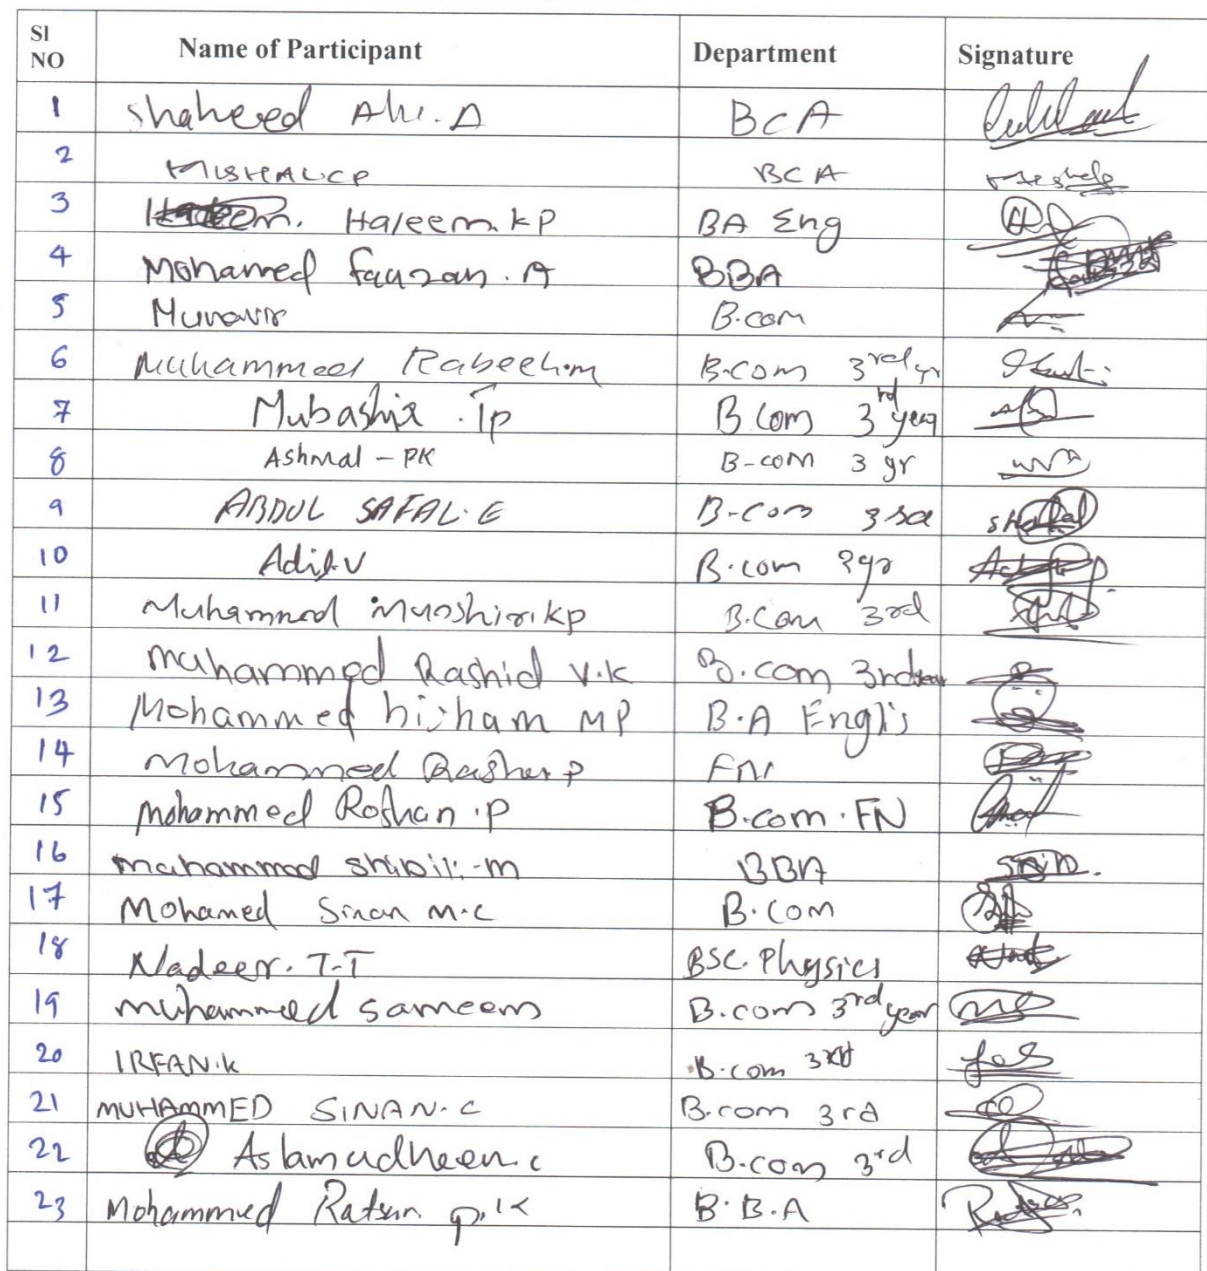 Sl NO Name of Participant Department Signature
1 Shaheed Ali. A BCA
2 MISHAL CP BCA
3 Haleem. KP BA Eng
4 Mohamed fauzan. A BBA
5 Munavir B.com
6 Muhammed Rabeeh.m B.com 3rd yr
7 Mubashir .Tp B.Com 3rd year
8 Ashmal - PK B-com 3 yr
9 ABDUL SAFAL. E B-Com
10 Adil.V B.com
11 Muhammed KP B.Com 3rd
12 muhammed Rashid V.K B.com 3rd year
13 Mohammed hisham MP B.A Englis
14 Mohammed
15 Mohammed Roshan .P B.com.FN
16 muhammed shibili-m BBA
17 Mohamed Sinan M.C B.Com
18 Nadeer. T-T BSC. Physics
19 muhammed sameem B.com 3rd year
20 IRFAN.K B.com 3rd
21 MUHAMMED SINAN. C B.com 3rd
22 Aslamudheen.c B.com 3rd
23 Mohammed p.K B.B.A